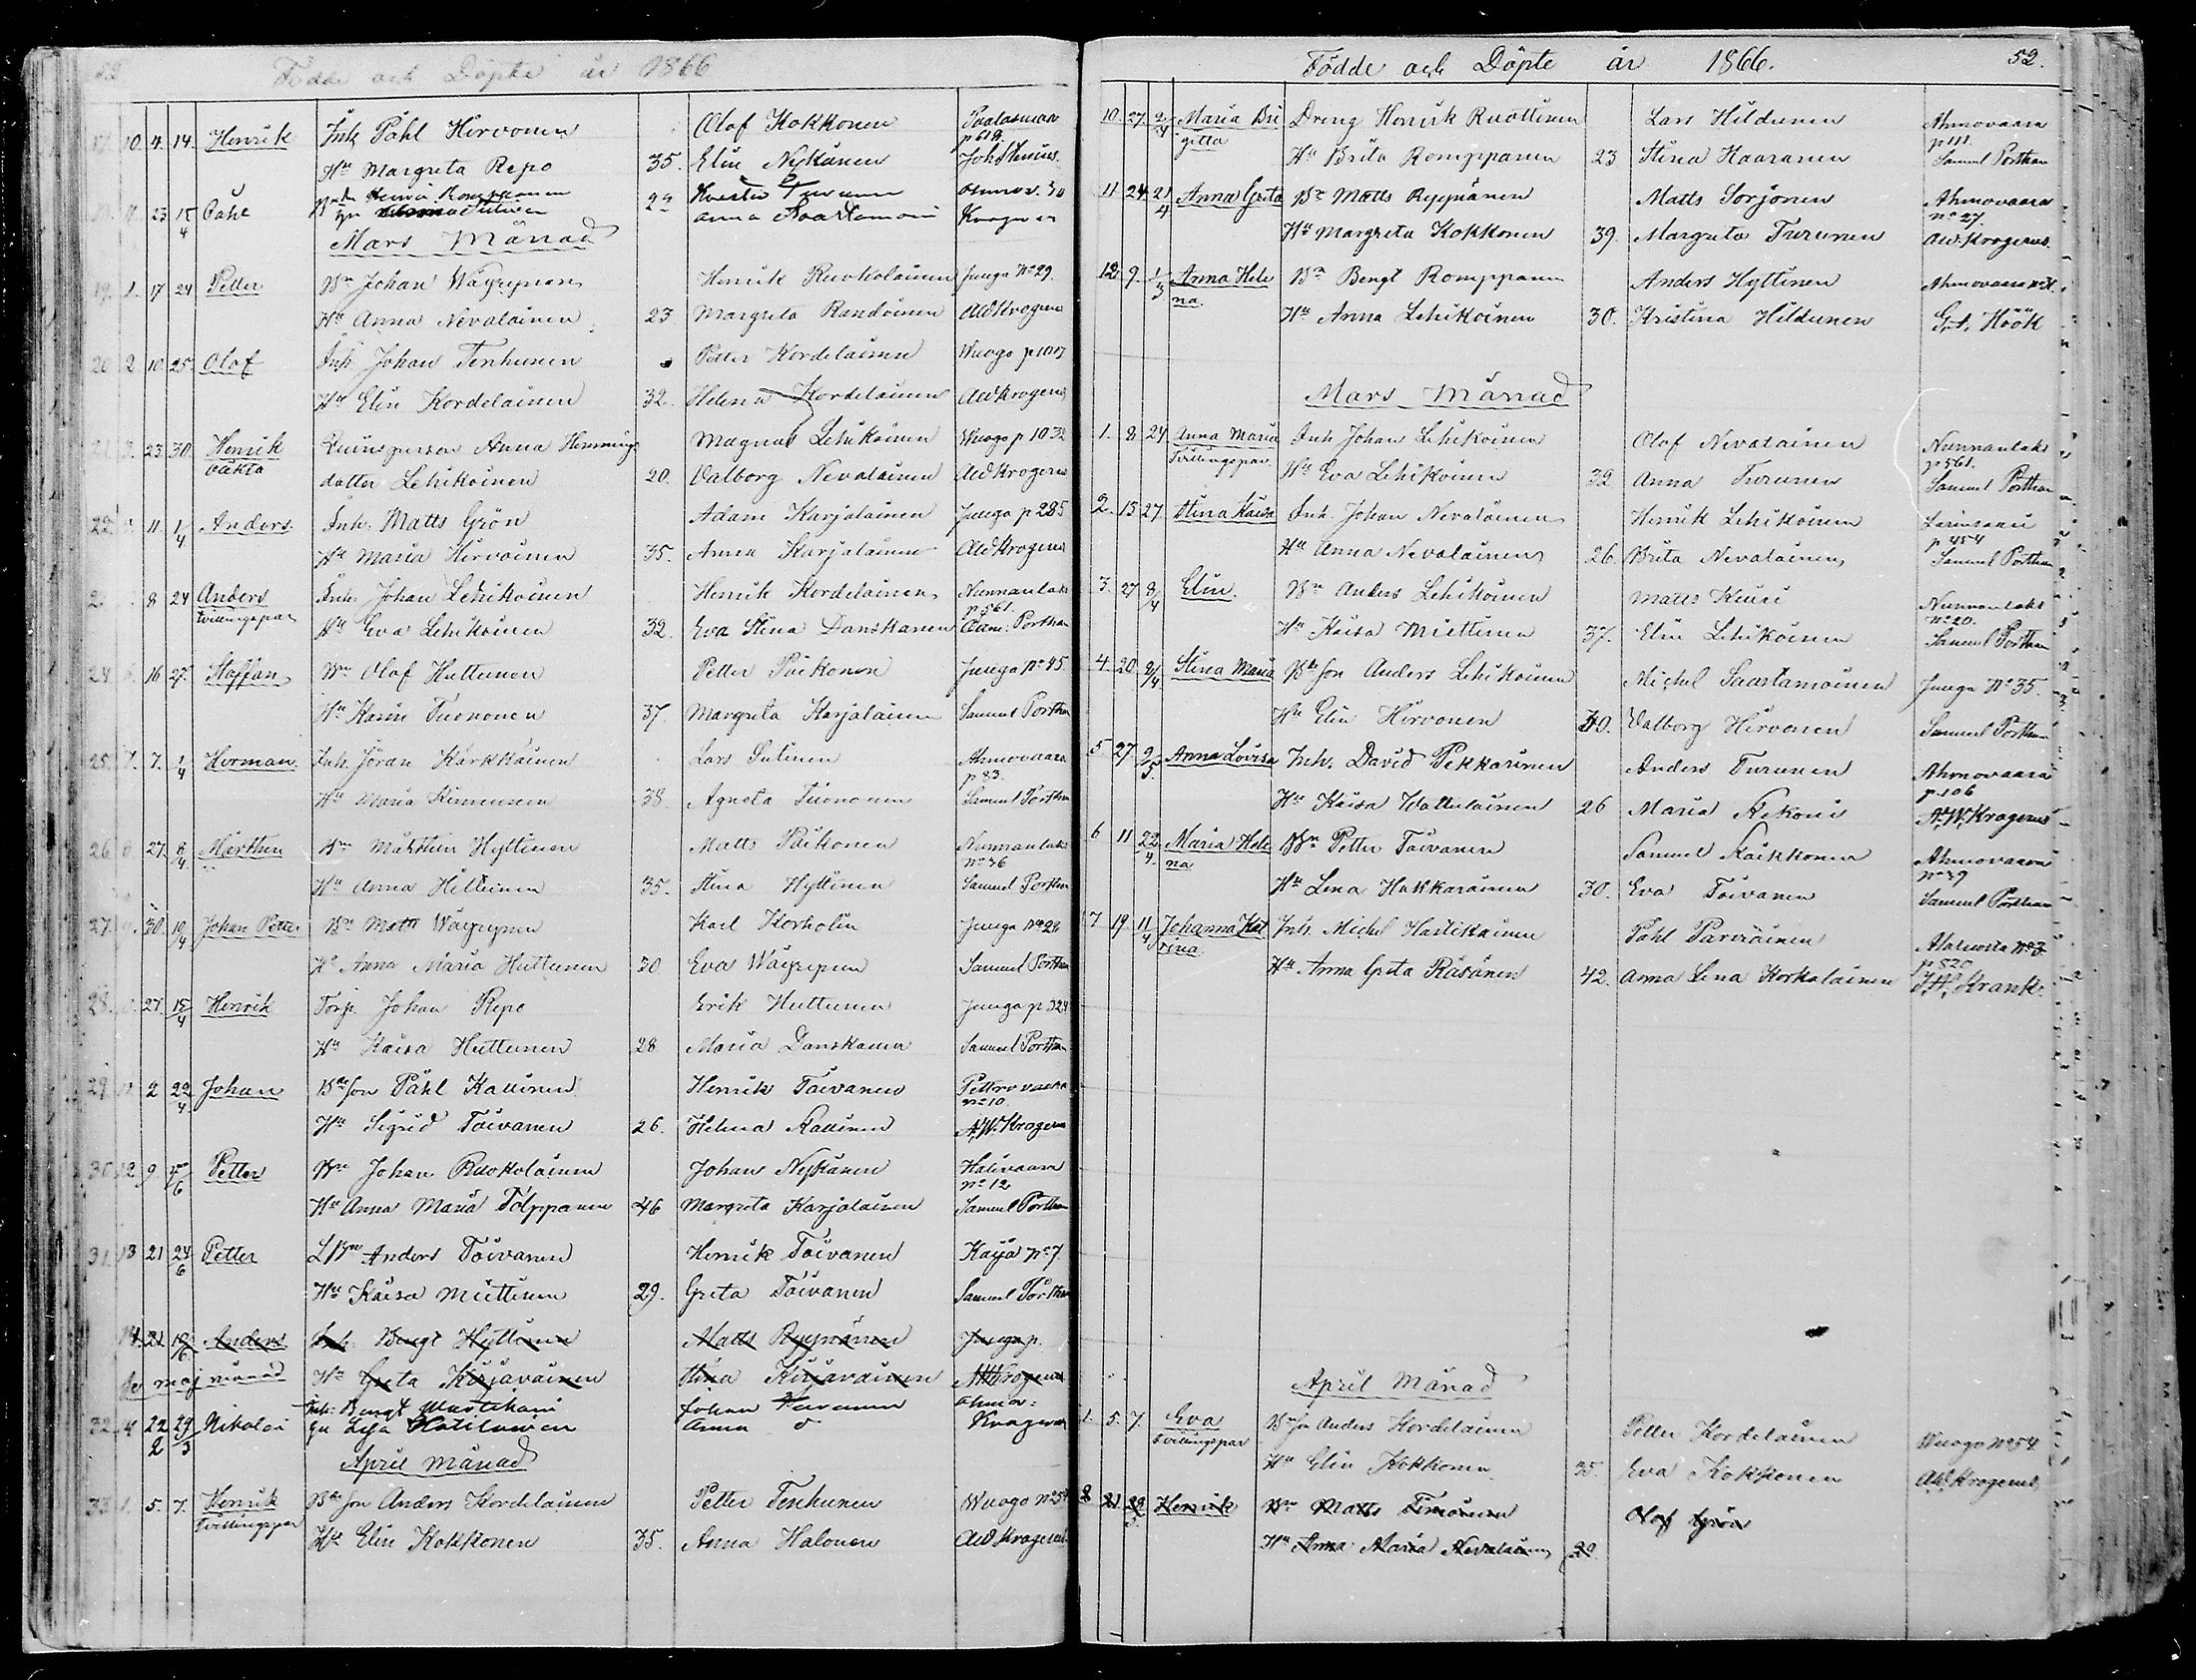 52
Födde och Döpte år 1866
17. 10. 4. 14. Henrik Inh. Påhl Hirvonen Olof Kokkonen Paalasmaa
p 618.
Hu Margreta Repo 35. Elin Nykänen Joh Stenius
23 15/4 Påhl Henrik Romppanen Turunen
Anna Saastamoin
Mars Månad
19. 1. 17 24 Petter Bn Johan Wäyrynen Henrik Ruokolainen Juuga No 29.
Hu Anna Nevalainen 23 Margreta Randoinen AWKrogerus
20. 2. 10. 25. Olof Inh. Johan Tenhunen Petter Kordelainen Wuogo p 1017
Hu Elin Kordelainen 32. Helena Kordelainen AWKrogerus
21. 3. 23. 30. Henrik Quinsperson Anna Hemmings Magnus Lehikoinen Wuogo p 1032
oäkta dotter Lehikoinen 20. Valborg Nevalainen AWKrogerus
22. 4. 11 1/4 Anders Inh. Matts Grön Adam Karjalainen Juuga p 285
Hu Maria Hirvoinen 35. Anna Karjalainen AWKrogerus
8 24 Anders Inh. Johan Lehikoinen Henrik Kordelainen Nunnanlaks
p 561.
tvillingspar Hu Eva Lehikoinen 32. Eva Stina Danskanen Sam. Porthan
24 6. 16 27. Staffan Bn Olof Huttunen Petter Päikonen Juuga No 45
Hu Karin Tuononen 37. Margreta Karjalainen Samuel Porthan
25. 7. 7. 1/4 Herman Inh. Jöran Kärkkäinen Lars Sutinen Ahmovaara
p 83.
Hu Maria Kinnunen 38 Agneta Tuononen Samuel Porthan
26 8. 27. 8/4 Mårthen Bn Mårthen Hyttinen Matts Päikonen Nunnanlaks
No 36
Hu Anna Hiltunen 35. Stina Hyttinen Samuel Porthan
27. 9. 30. 10/4 Johan Petter Bn Matts Wäyrynen Karl Korholin Juuga No 28
Hu Anna Maria Huttunen 30 Eva Wäyrynen Samuel Porthan
28. 27. 15/4 Henrik Torp. Johan Repo Erik Huttunen Juuga p 324
Hu Kaisa Huttunen 28. Maria Danskanen Samuel Porthan
29. 11 2 22/4 Johan Bdeson Påhl Kallinen Henrik Toivanen Petrovaara
No 10
Hu Sigrid Toivanen 26. Helena Kallinen A.W. Krogerus
30. 12. 9. Petter Bn Johan Ruokolainen Johan Nykänen Halivaara
No 12
Hu Anna Maria Tolppanen 46 Margreta Karjalainen Samuel Porthan
31. 13 21 24/6 Petter LBn Anders Toivanen Henrik Toivanen Kajo No 7
Hu Kaisa Miettinen 29. Greta Toivanen Samuel Porthan
14. 21 10/6 Anders Inh. Bengt Hyttinen Matts Ryynänen Juuga p.
se maj månad Hu Greta Kirjavainen Stina Kirjavainen AWKrogerus
Inh. Bengt Mustikain Johan Turunen Ahmov:
32. 14 22/2 29/3 Nikolai Hu Lisa Anna d Krogerus
April Månad
33. 1. 5. 7. Henrik Bdeson Anders Kordelainen Petter Tenhunen Wuogo No 54
tvillingspar Hu Elin Kokkonen 35. Anna Halonen AWKrogerus
Födde och Döpte år 1866. 52.
10. 27. 2/4 Maria Bri Dreng Henrik Ruottinen Lars Hildunen Ahmovaara
p 111.
gitta Hu Brita Romppanen 23 Stina Haaranen Samuel Porthan
11 24. 21/4 Anna Greta Bn Matts Ryynänen Matts Sorjonen Ahmovaara
No 27
Hu Margreta Kokkonen 39. Margreta Turunen AW.Krogerus.
12. 9. 1/5 Anna Hele Bn Bengt Romppanen Anders Hyttinen Ahmovaara
na. Hu Anna Lehikoinen 30. Kristina Hildunen G.A. Höök
Mars Månad
1. 8 24 Anna Maria Inh. Johan Lehikoinen Olof Nevalainen Nunnanlaks
p 561.
Tvillingspar. Hu Eva Lehikoinen 32 Anna Turunen Samuel Porthan
2. 15 27. Stina Kaisa Inh. Johan Nevalainen Henrik Lehikoinen Larinsaari
p 454
Hu Anna Nevalainen 26. Brita Nevalainen Samuel Porthan
3. 27 8/4 Elin. Bn Anders Lehikoinen Matts Kiuri Nunnanlaks
No 20.
Hu Kaisa Miettinen 37. Elin Lehikoinen Samuel Porthan
4. 20. 8/4 Stina Maria Bdeson Anders Lehikoinen Michel Saastamoinen Juuga No 35.
Hu Elin Hirvonen 30. Valborg Hirvonen Samuel Porthan
5 27 9/5 Anna Lovisa Inh. David Pekkarinen Anders Turunen Ahmovaara
p 106
Hu Kaisa Wattulainen 26 Maria Kekoni A.W.Krogerus
6 11 22/4. Maria Hele Bn Petter Toivanen Samuel Kaikkonen Ahmovaara
No 39
na Hu Lena Hakkarainen 30. Eva Toivanen Samuel Porthan
7 19 11/4 Johanna Kat Inh. Michel Hartikainen Pahl Parviainen
p 820
rina Hu Anna Greta Räsänen 42. Anna Lena Korkalainen J.H. Strank.
April Månad
1. 5. 7. Eva Bdeson Anders Kordelainen Petter Kordelainen Wuogo No 54
tvillingspar Hu Elin Kokkonen 35. Eva Kokkonen AW.Krogerus
2 21 29/5. Henrik Bn Matts Timonen Olof Grön
Hu Anna Maria Nevalainen 20.